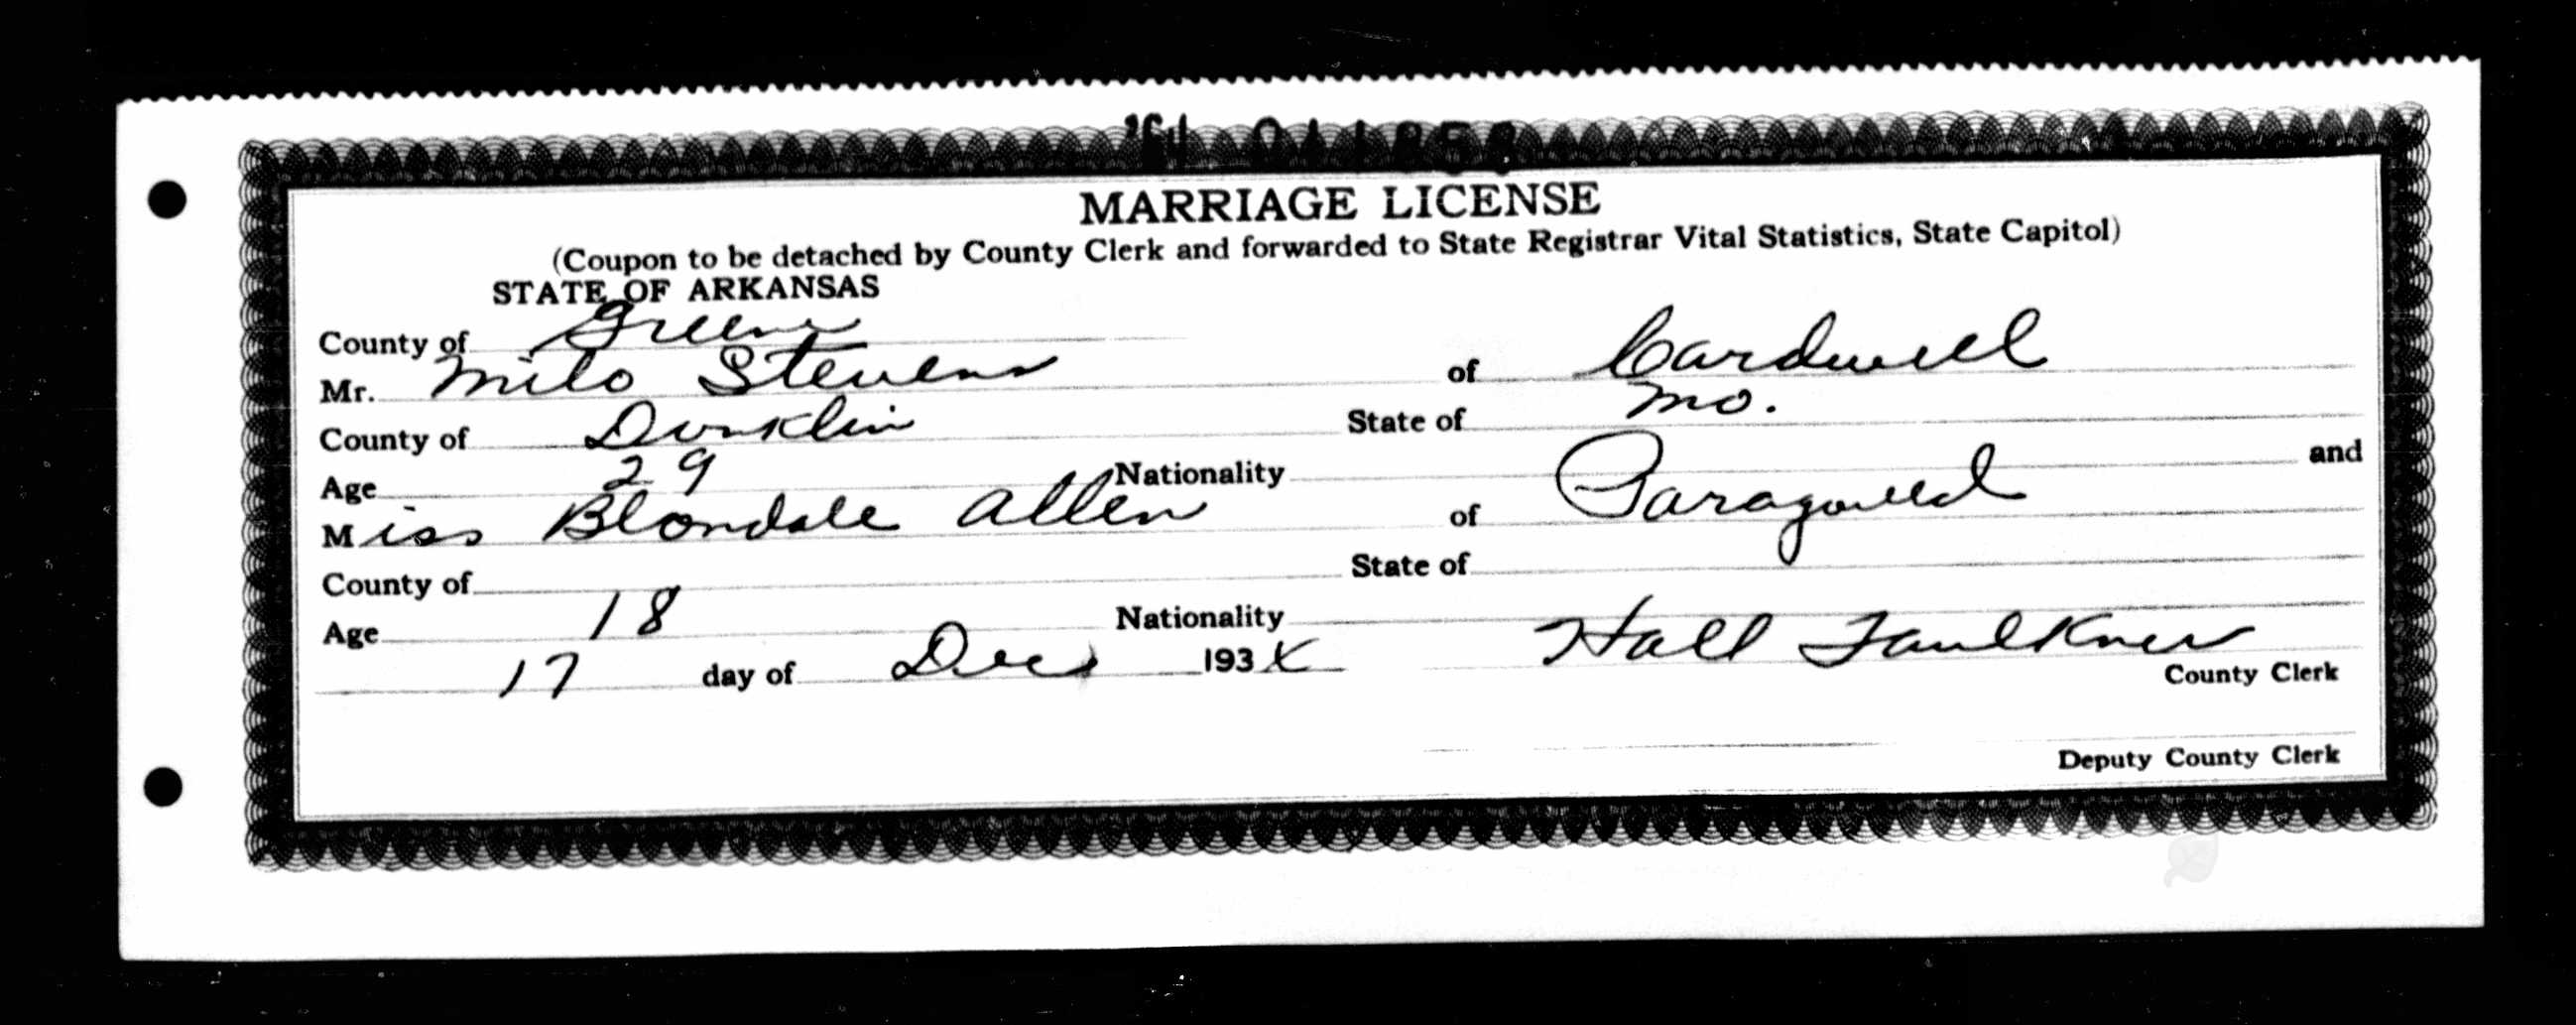 MARRIAGE LICENSE
(Coupon to be detached by County Clerk and forwarded to State Registrar Vital Statistics, State Capitol)
STATE OF ARKANSAS
County of Greene
Mr. Milo Stevens of Cardwell
County of Dunklin State of Mo.
Age 29 Nationality and
Miss Blondale Allen of Paragould
County of State of
Age 18 Nationality
17 day of Dec 193 Hall Faulkner
County Clerk
Deputy County Clerk